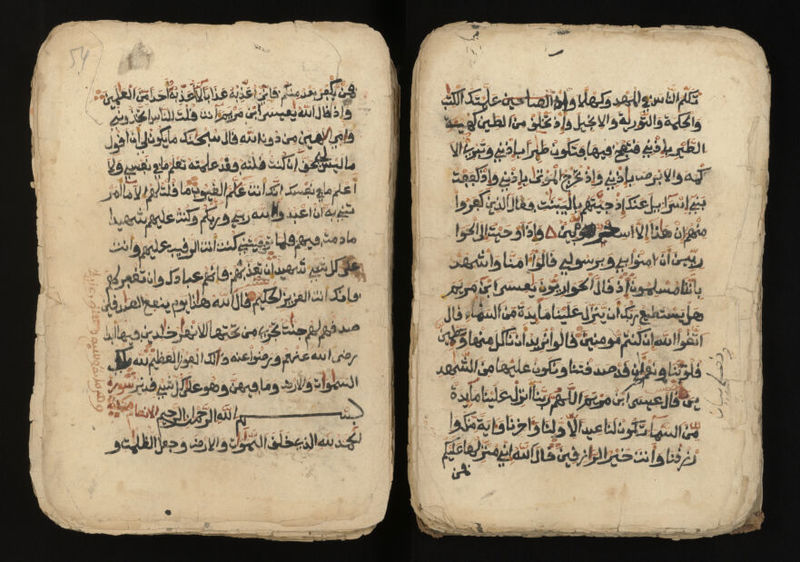 تكلم الناس في المهد وكهلا وإذ علمتك الكتب
والحكمة والتورية والانجيل وإذ تخلق من الطين كهيئة
الطير بإذني فتنفخ فيها فتكون طيرا بإذني وتبرئ الا
كمه والابرص بإذني وإذ تخرج الموتى بإذني وإذ كففت
بني إسرائيل عنك إذ جيتهم بالبينت فقال الذين كفروا
منهم ان هذا إلا سحر مبين وإذ اوحيت الى الحوا
ريين أن امنوا بي وبرسولي قالوا امنا واشهد
بأننا مسلمون إذ قال الحواريون يعيسى ابن مريم
هل يستطيع ربك أن ينزل علينا مايدة من السماء قال
اتقوا الله إن كنتم مومنين قالوا نريد أن ناكل منها وتطمئن
قلوبنا ونعلم ان قد صدقتنا ونكون عليها من الشهد
ين قال عيسى ابن مريم اللهم ربنا أنزل علينا مايدة
من السماء تكون لنا عيدا لأولنا وءاخرنا وءاية منك وا
رزقنا وأنت خير الرازقين قال الله إني منزلها عليكم
فمن
54
فمن يكفر بعد منكم فإني أعذبه عذابا لا أعذبه أحدا من العلمين
وإذ قال الله يعيسى ابن مريم ءانت قلت للناس اتخذوني
وأمي إلهين من دون الله قال سبحنك ما يكون لي أن أقول
ما ليس لي بحق إن كنت قلته فقد علمته تعلم ما في نفسي ولا
أعلم ما في نفسك إنك أنت علم الغيوب ما قلت لهم إلا ما أمر
تني به أن اعبدوا الله ربي وربكم وكنت عليهم شهيدا
ما دمت فيهم فلما توفيتني كنت أنت الرقيب عليهم وأنت
على كل شيء شهيد إن تعذبهم فإنهم عبادك وإن تغفر لهم
فإنك أنت العزيز الحكيم قال الله هذا يوم ينفع الصدقين
صدقهم لهم جنت تجري من تحتها الانهر خلدين فيها أبدا
رضي الله عنهم ورضوا عنه ذلك الفوز العظيم لله ملك
السموات والارض وما فيهن وهو على كل شيء قدير سورة
الانعام
بسم الله الرحمن الرحيم
الحمد لله الذي خلق السموات والارض وجعل الظلمت و